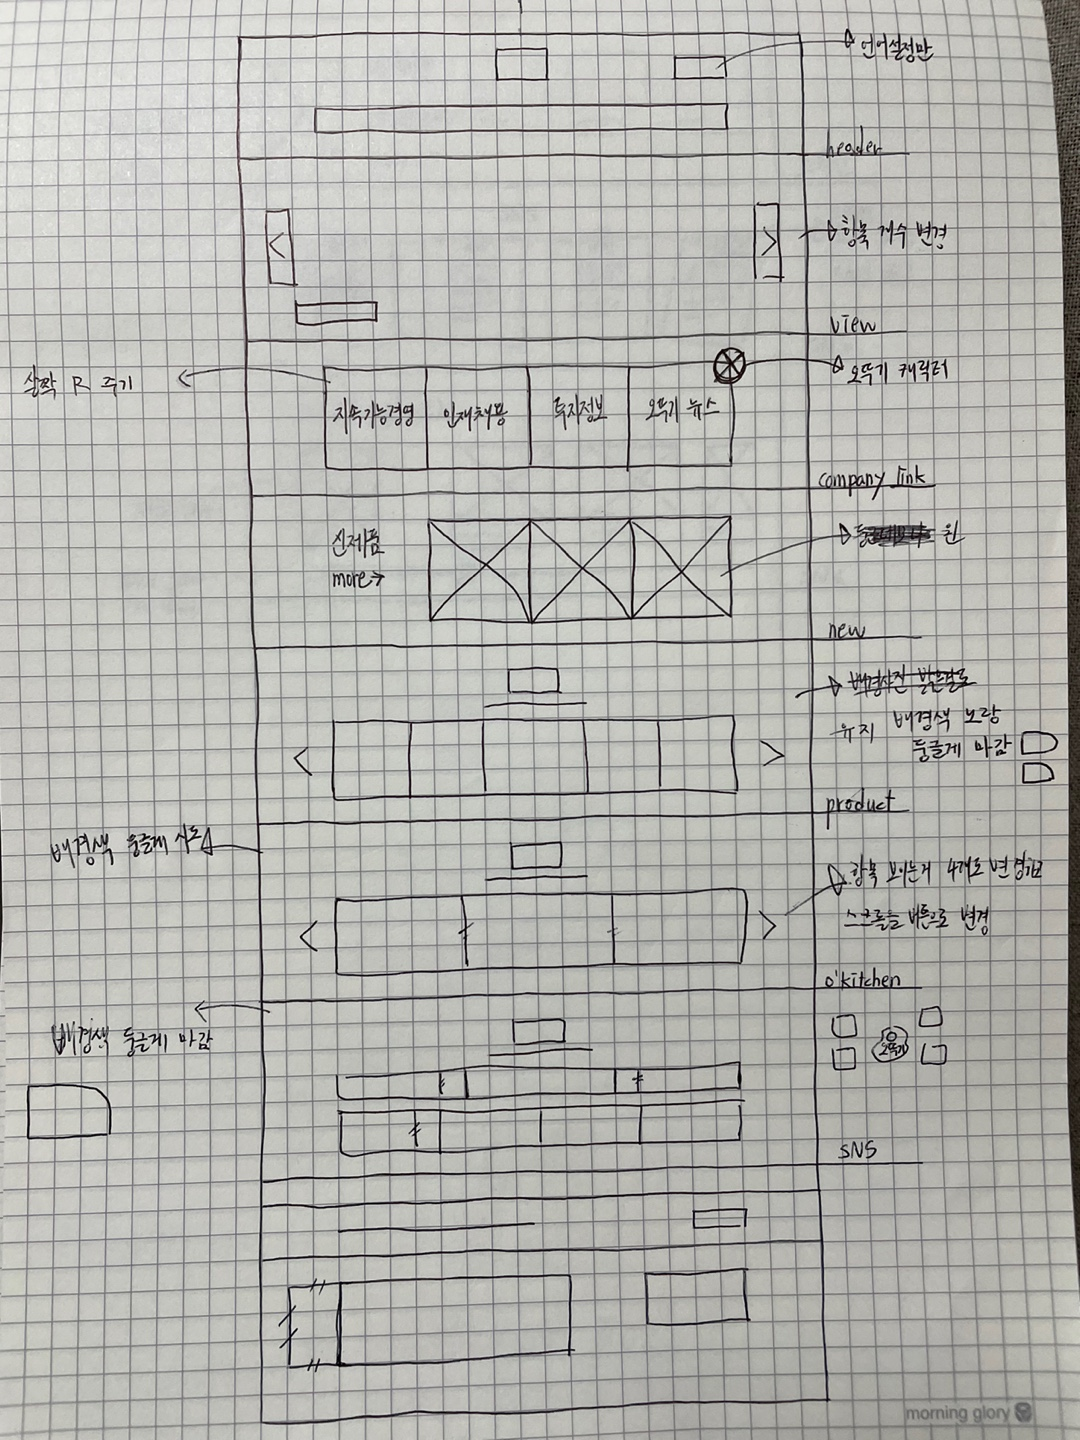 언어설정만
header
<
>
항목 개수 변경
view
살짝 R 주기
오뚜기 캐릭터
지속가능경영
인재채용
투자정보
오뚜기 뉴스
company link
신제품
more→
원
new
배경사진 밝은걸로
유지 배경색 노랑
둥글게 마감
<
>
product
배경색 둥글게 시도
항목 보이는거 4개로 변경하고
스크롤을 버튼으로 변경
<
>
o'kitchen
배경색 둥글게 마감
오뚜기
SNS
morning glory